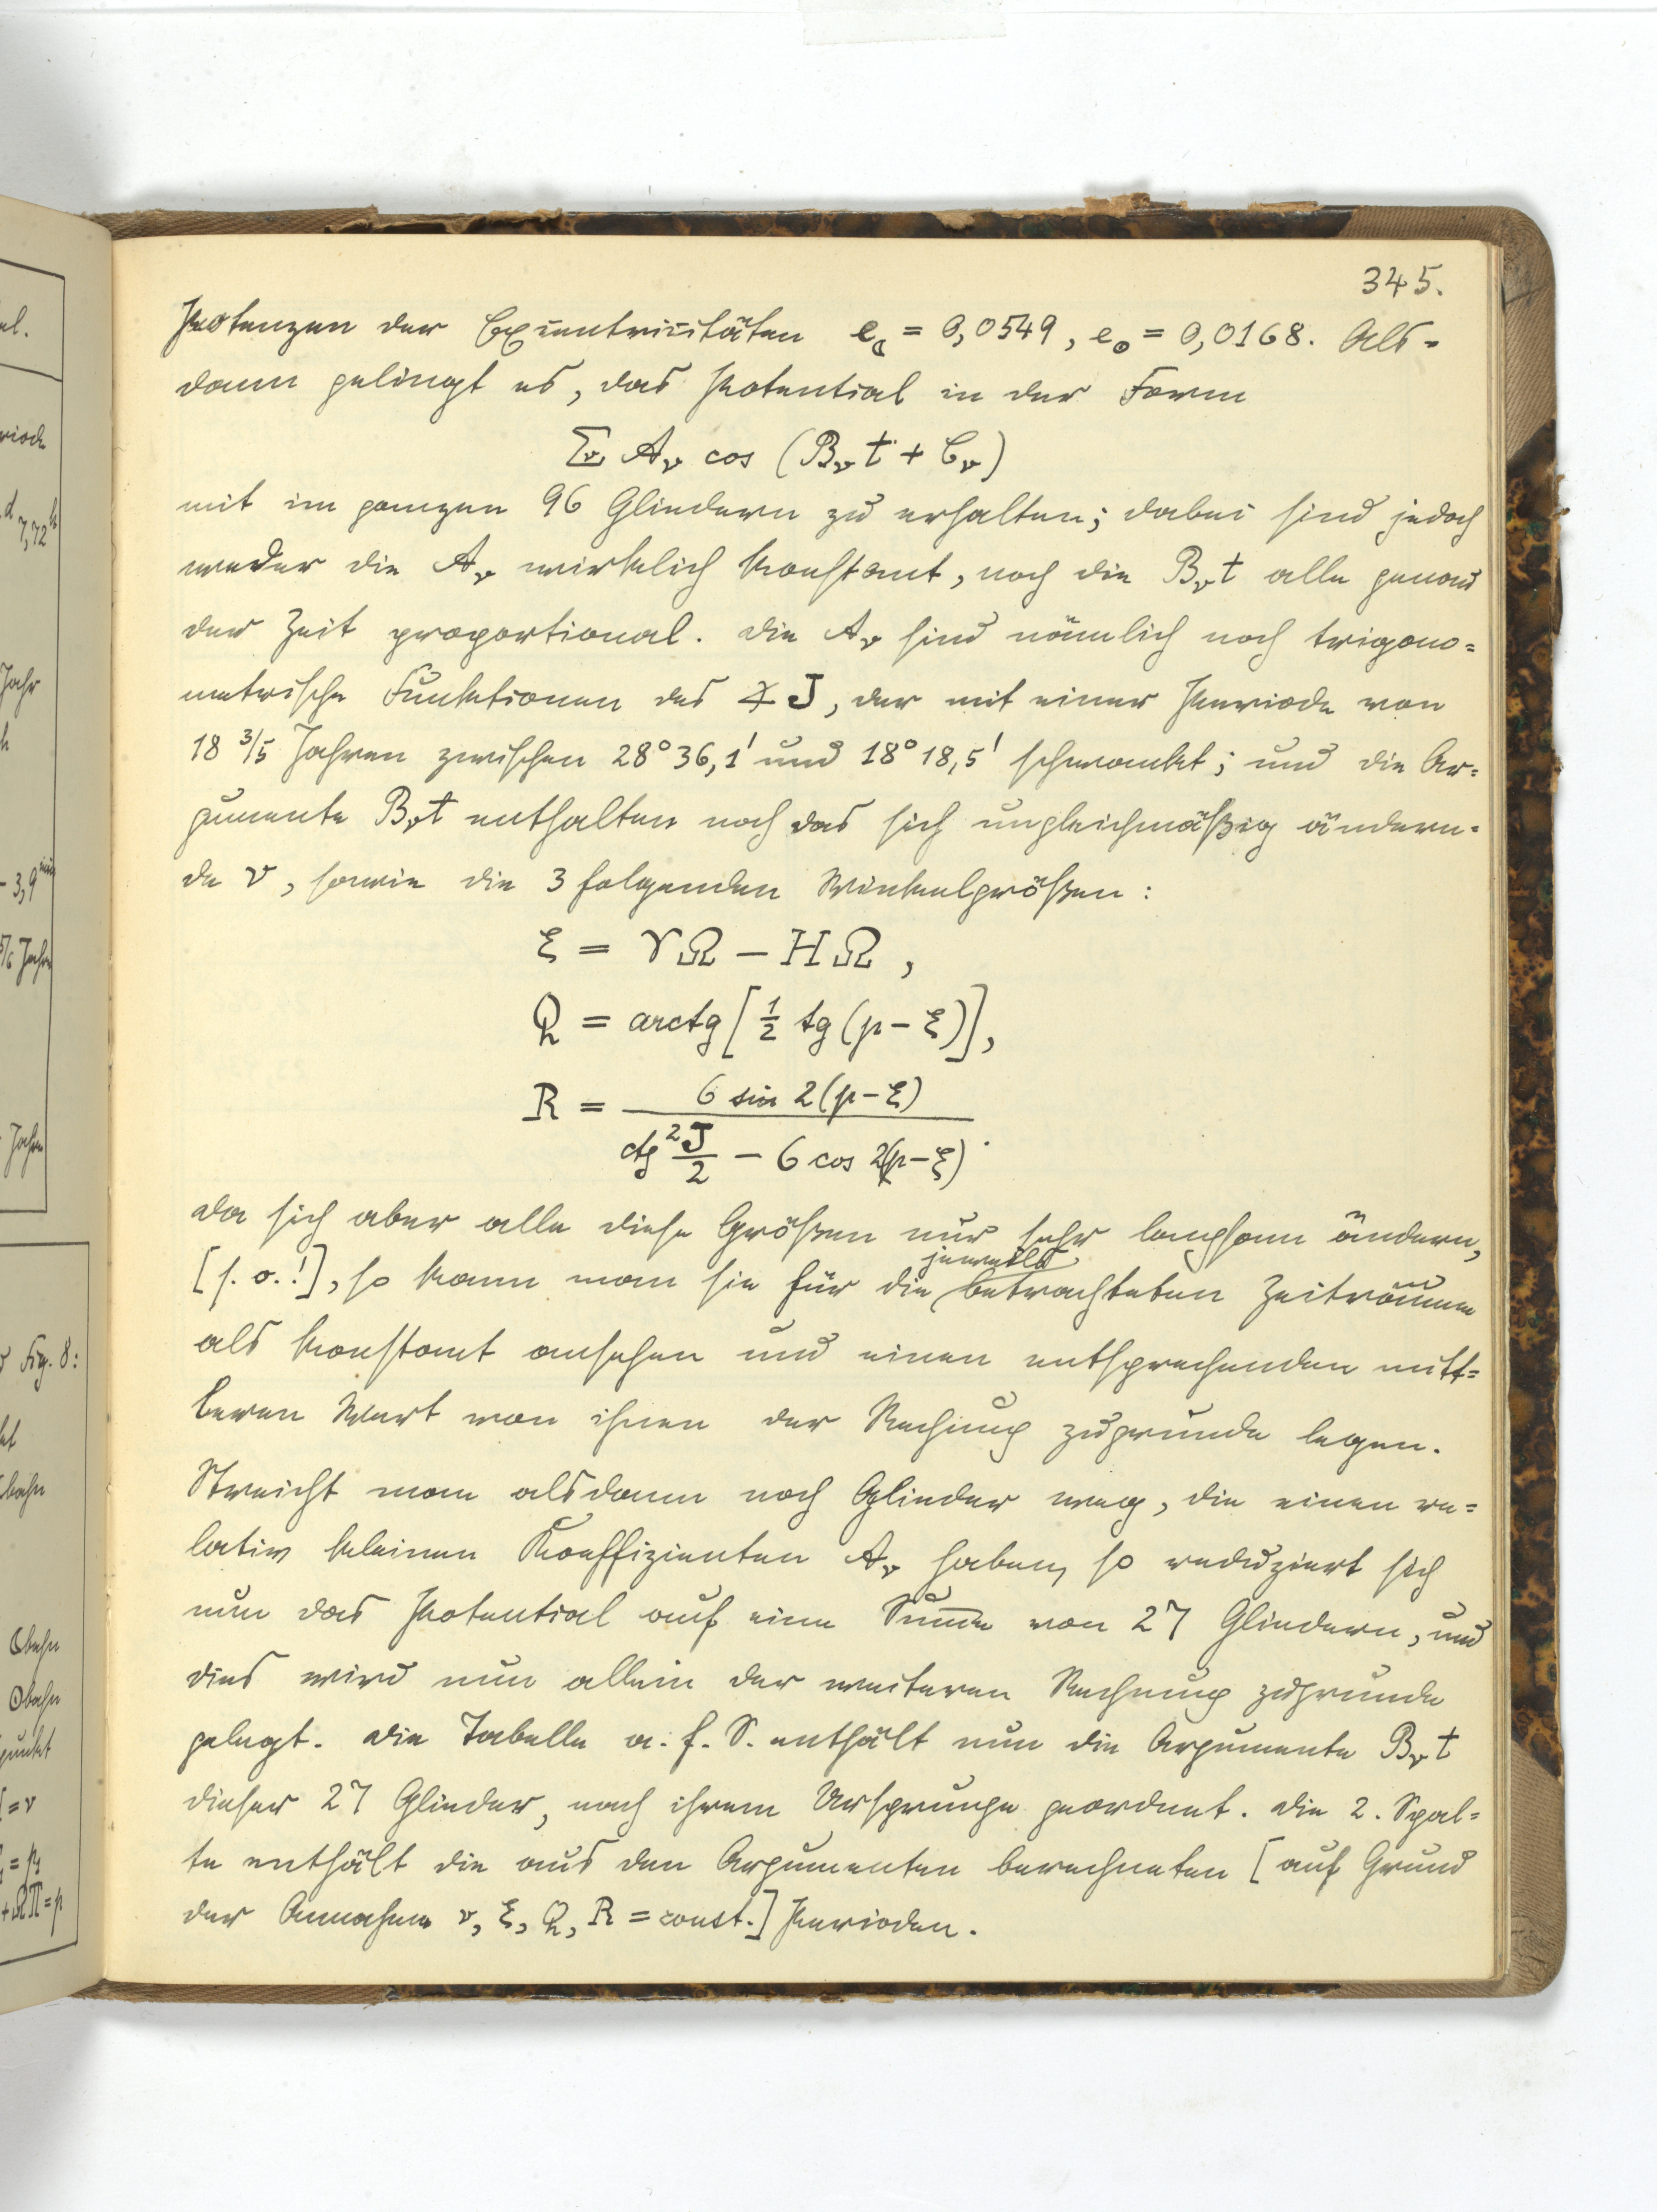 345.
Potenzen der Exzentrizitäten e☾ = 0,0549, e☉ = 0,0168. Als-
dann gelingt es, das Potential in der Form
Σ Aᵥ cos (Bᵥt + Cᵥ)
mit im ganzen 96 Gliedern zu erhalten; dabei sind jedoch
weder die Aᵥ wirklich konstant, noch die Bᵥt alle genau
der Zeit proportional. Die Aᵥ sind nämlich noch trigono=
metrische Funktionen des ∡ J, der mit einer Periode von
18 3/5 Jahren zwischen 28° 36,1' und 18° 18,5' schwankt; und die Ar=
gumente Bᵥt enthalten noch das sich ungleichmäßig ändern-
de ν, sowie die 3 folgenden Winkelgrößen:
ξ = ♈☊ - H☊,
Q = arctg [1/2 tg (p - ξ)],
R = 6 sin 2(p - ξ)
ctg² J/2 - 6 cos 2(p - ξ).
Da sich aber alle diese Größen nur sehr langsam ändern,
[s. o.!], so kann man sie für die jeweils betrachteten Zeiträume
als konstant ansehen und einen entsprechenden mitt=
leren Wert von ihnen der Rechnung zugrunde legen.
Streicht man alsdann noch Glieder weg, die einen re=
lativ kleinen Koeffizienten Aᵥ haben, so reduziert sich
nun das Potential auf eine Summe von 27 Gliedern, und
dies wird nun allein der weiteren Rechnung zugrunde
gelegt. Die Tabelle a. f. S. enthält nun die Argumente Bᵥt
dieser 27 Glieder, nach ihrem Ursprunge geordnet. Die 2. Spal=
te enthält die aus den Argumenten berechneten [auf Grund
der Annahme ν, ξ, Q, R = const.] Perioden.
7,72ʰ
Jahr
- 3,9ᵐⁱⁿ
Fig. 8:
= ν
= p